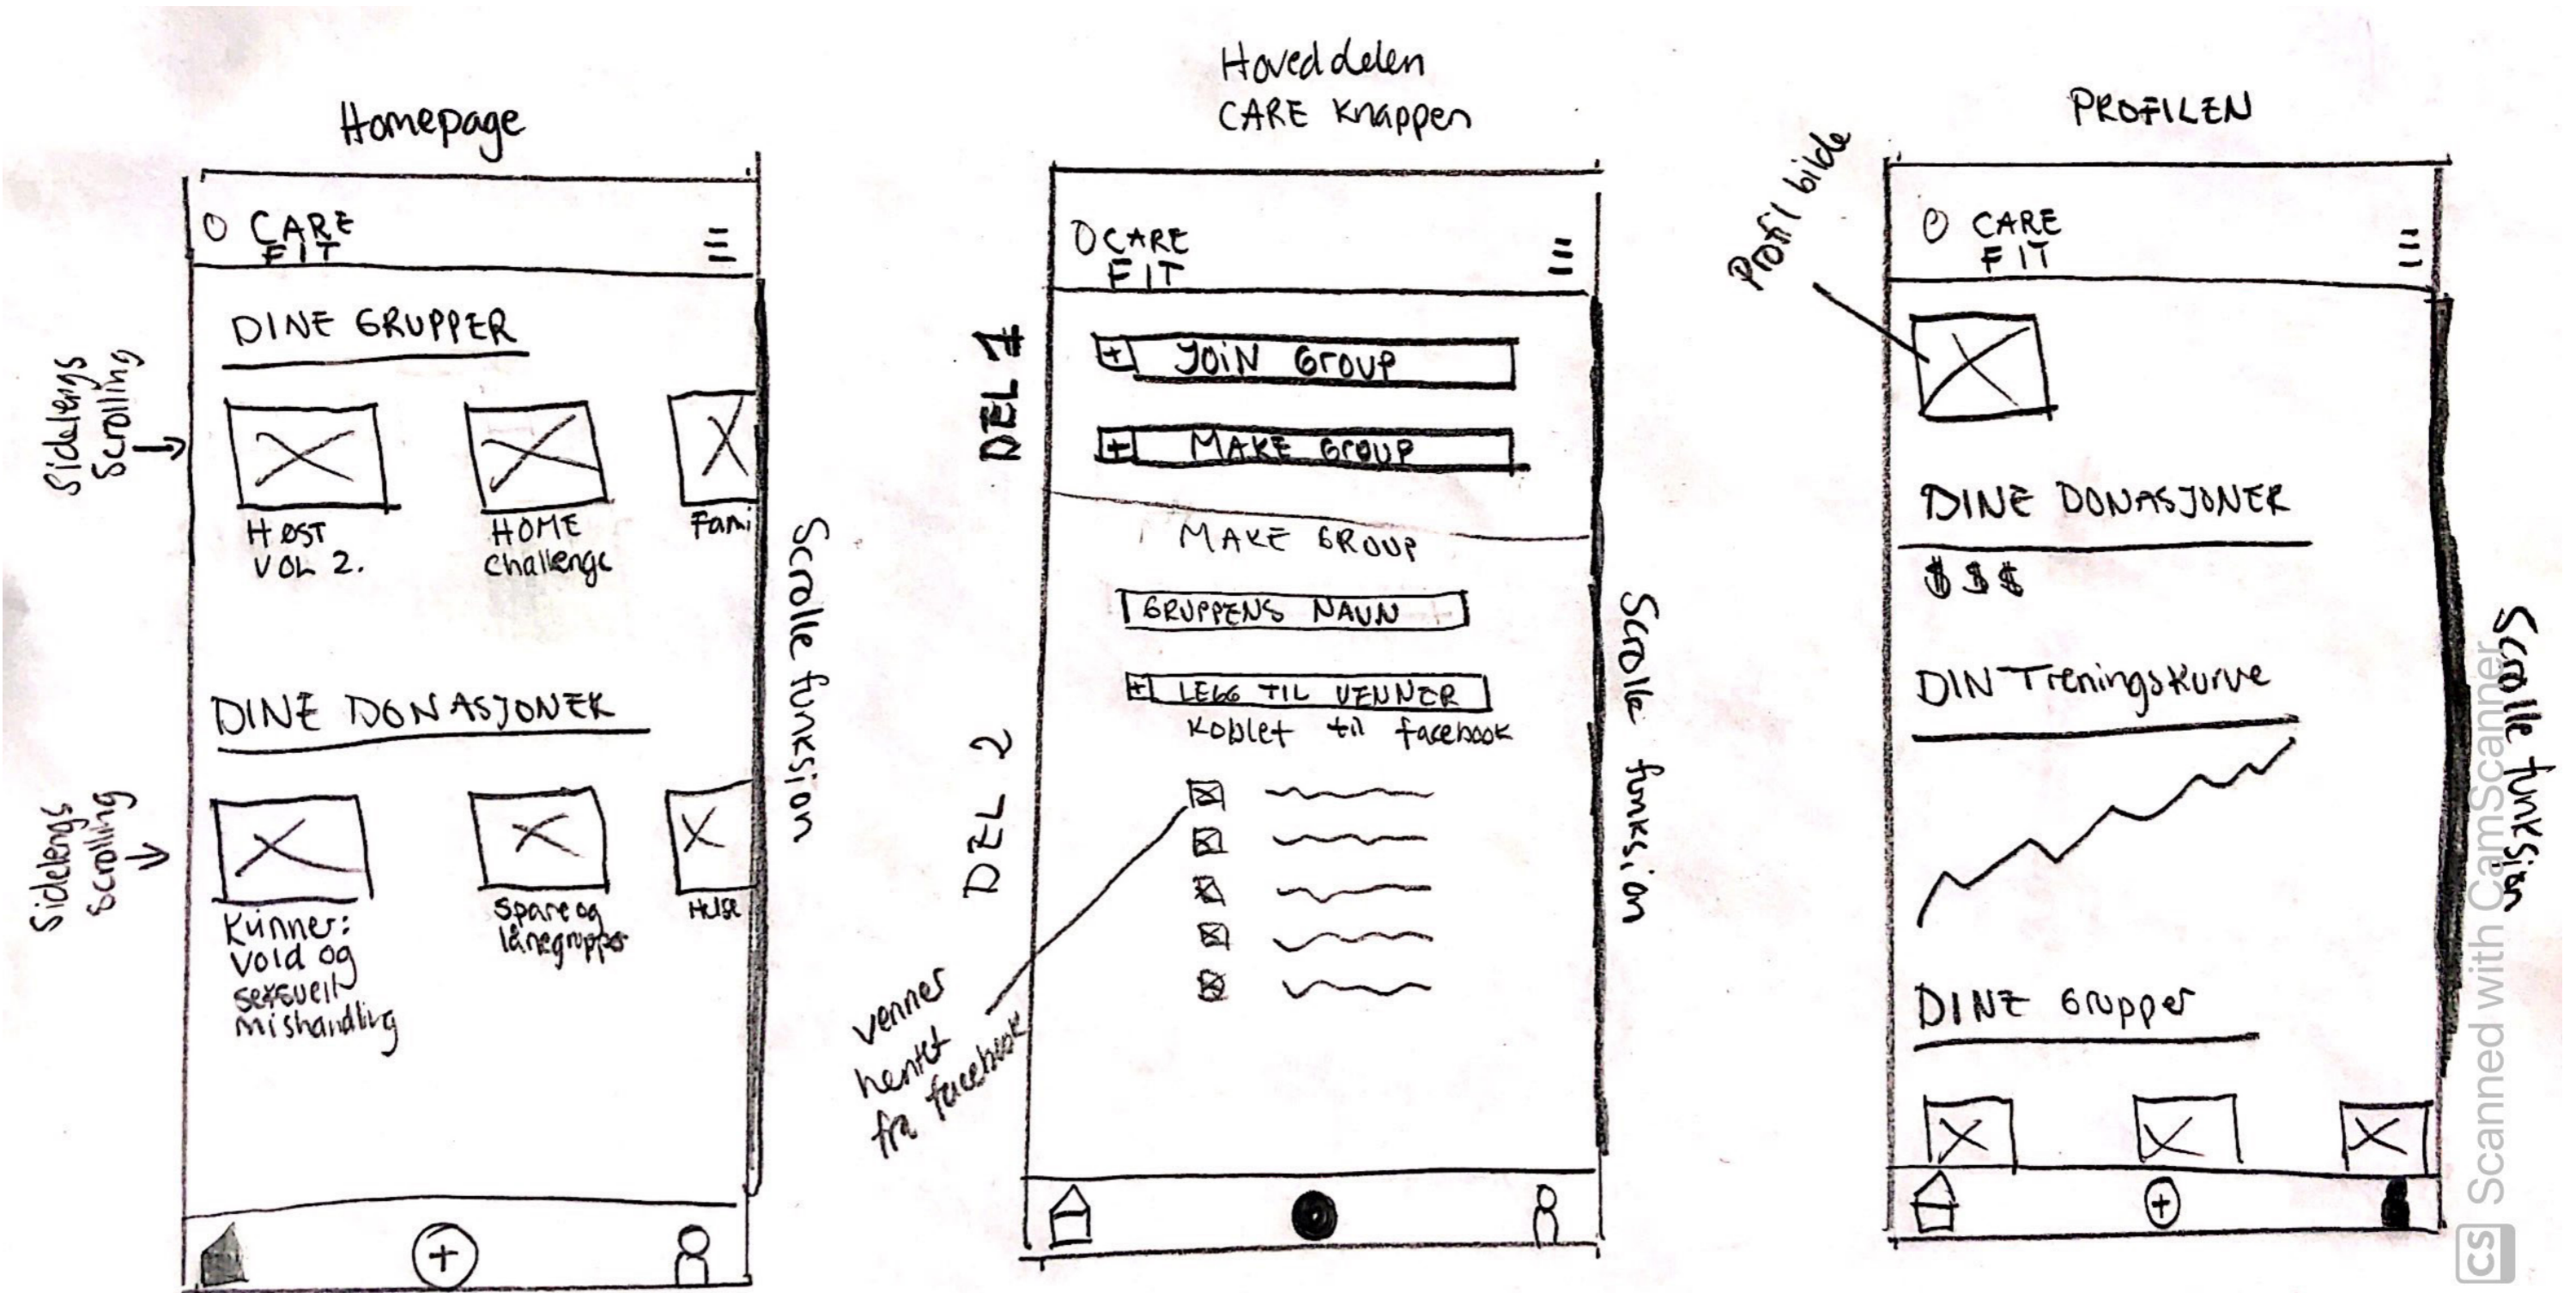 Homepage
CARE
FIT
DINE GRUPPER
Sidelengs
Scrolling
HØST
VOL 2.
HOME
challenge
Fami
DINE DONASJONER
Sidelengs
Scrolling
Kvinner:
Vold og
seksuell
mishandling
Spare og
lånegrupper
Helse
Scrolle funksjon
Hoveddelen
CARE Knappen
CARE
FIT
DEL 1
JOIN Group
MAKE Group
MAKE GROUP
GRUPPENS NAVN
LEGG TIL VENNER
Koblet til facebook
DEL 2
venner
hentet
fra facebook
Scrolle funksjon
PROFILEN
Profil bilde
CARE
FIT
DINE DONASJONER
$ $ $
DIN Treningskurve
DINE Grupper
Scrolle funksjon
CS Scanned with CamScanner